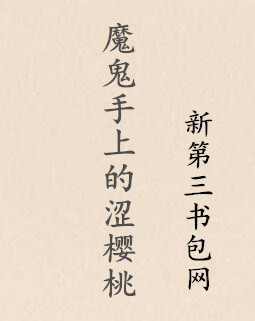 魔鬼手上的涩樱桃
新第三书包网